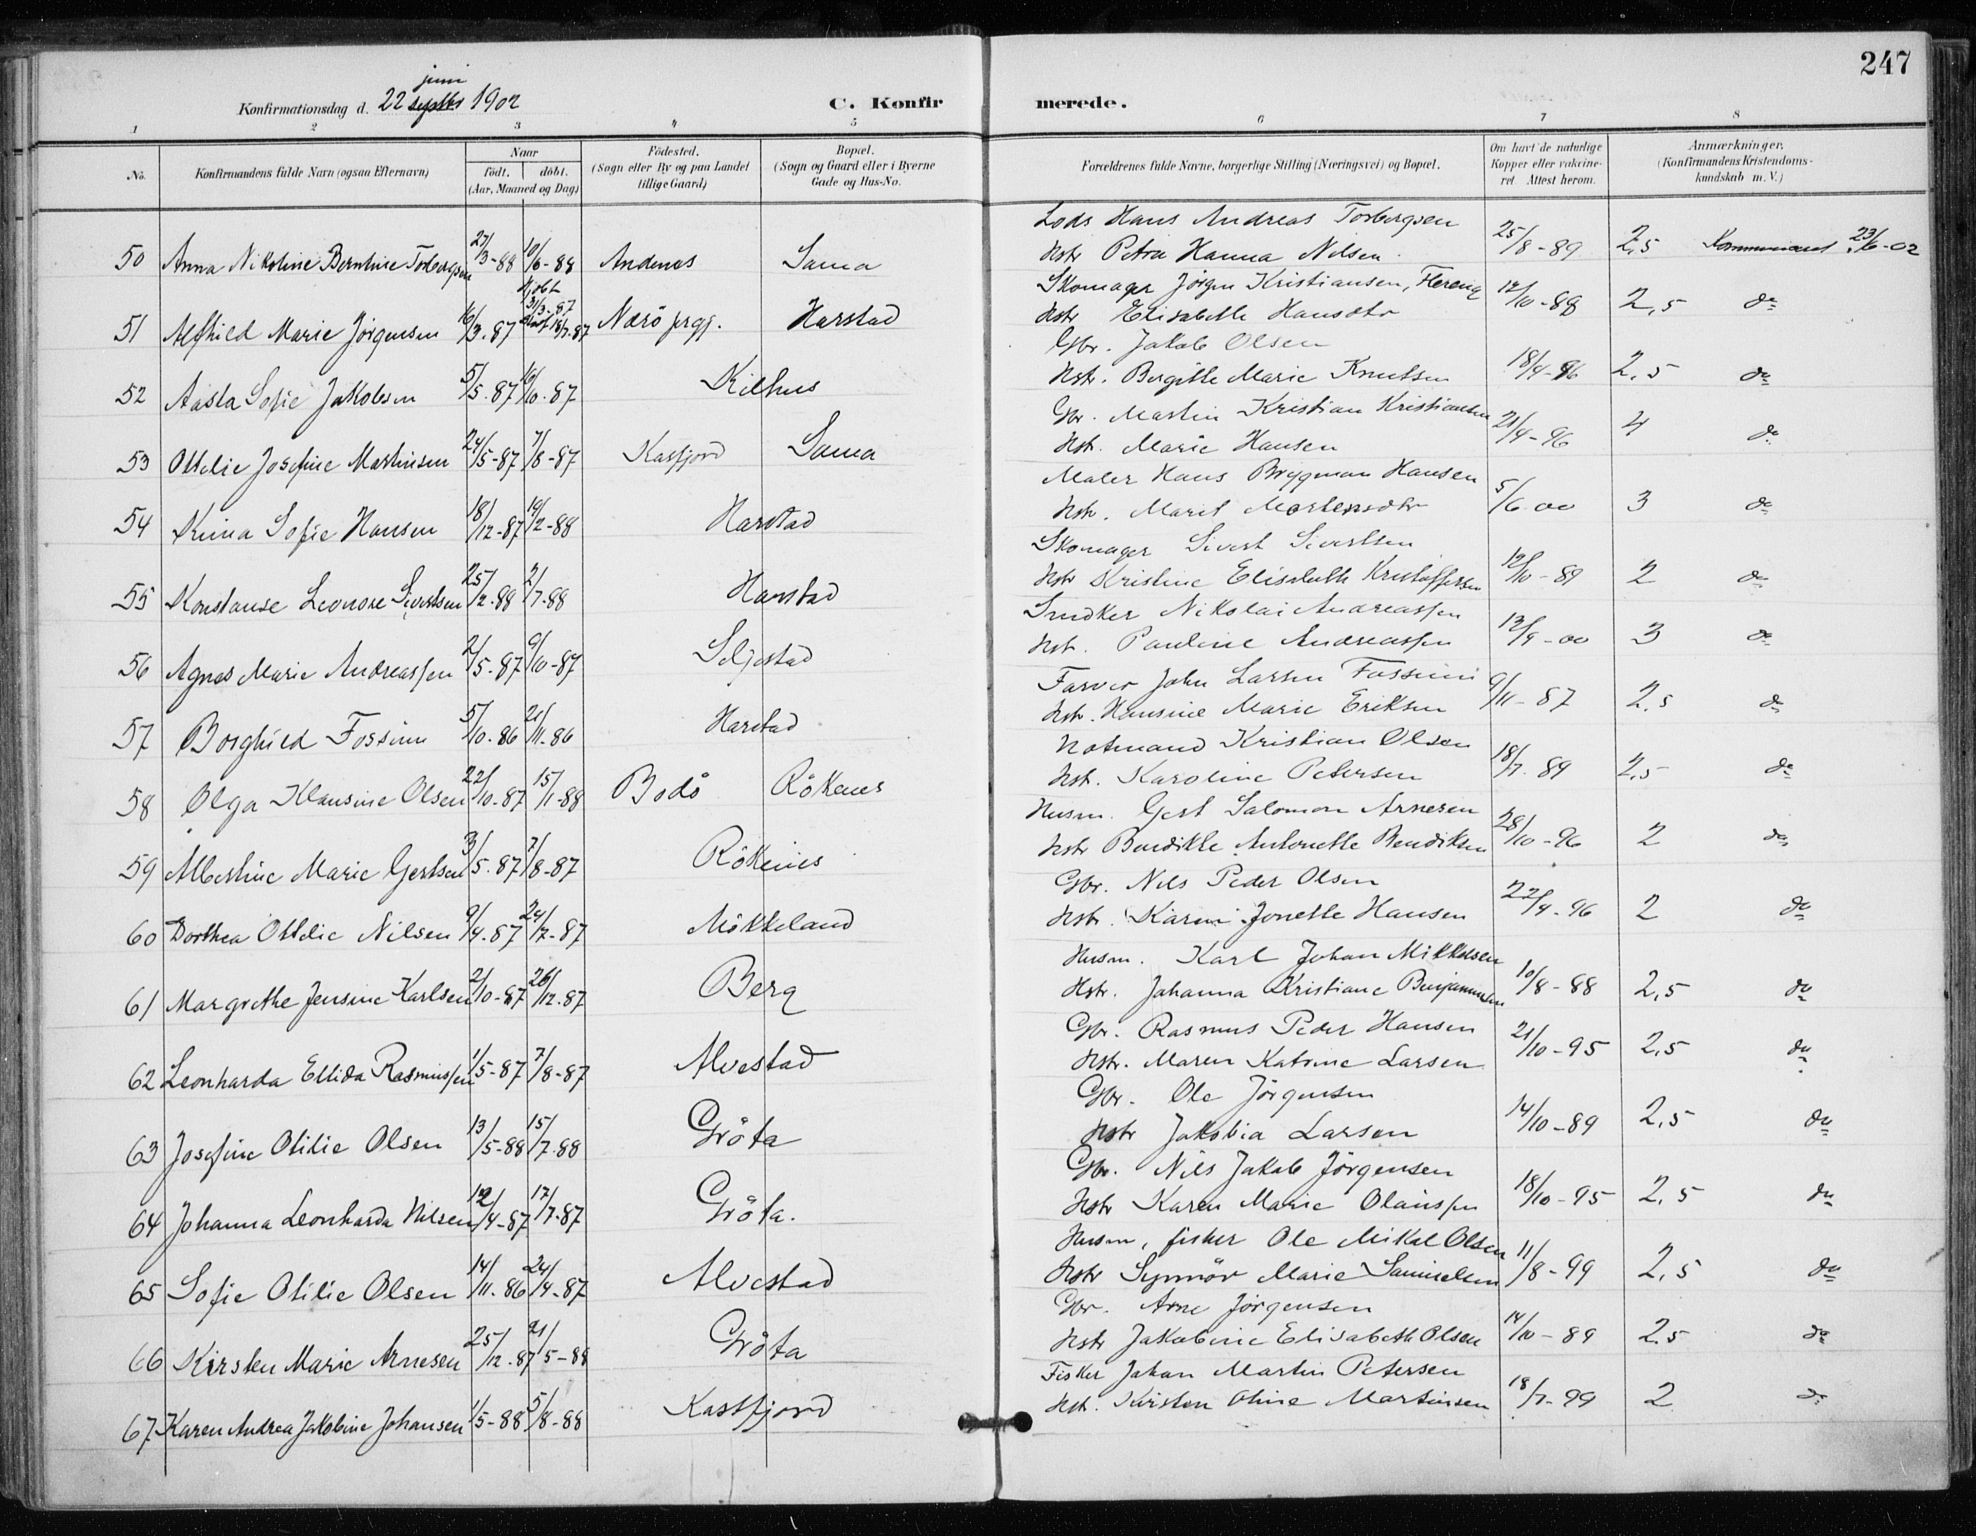 247
juni
Konfirmationsdag d. 22 septbr 1902
C. Konfirmerede.
1 2 3 4 5 6 7 8
No.
Konfirmandens fulde Navn (ogsaa Efternavn)
Naar
født. døbt.
(Aar, Maaned og Dag)
Födested.
(Sogn eller By og paa Landet
tillige Gaard)
Bopæl.
(Sogn og Gaard eller i Byerne
Gade og Hus-No.
Forældrenes fulde Navne, borgerlige Stilling (Næringsvei) og Bopæl.
Om havt de naturlige
Kopper eller vaksine-
ret Attest herom.
Anmærkninger.
(Konfirmandens Kristendoms-
kundskab m. V.)
Lods Hans Andreas Torbergsen
50 Anna Nikoline Berntine Torbergsen 27/3-88 10/6-88 Andenes Sama Hstr Petra Hanna Nilsen 25/8-89 2,5 Kommuniceret 23/6-02
Skomager Jörgen Kristiansen,
51 Alfhild Marie Jörgensen 16/3.87 Hjdöbt 31/3-87 18/7.87 Nærö prgj. Harstad Hstr Elisabeth Hansdtr 12/10-88 2,5 do
Gbr. Jakob Olsen
52 Aasta Sofie Jakobsen 5/5.87 16/10.87 Kilhus Hstr. Bergitte Marie Knutsen 18/4-96 2,5 do
Gbr. Martin Kristian Kristiansen
53 Ottelie Josefine Martinsen 24/5-87 7/8-87 Kasfjord Sama Hst. Marie Hansen 21/4-96 4 do
Maler Hans Brygman Hansen
54 Sofie Hansen 18/12-87 19/2-88 Harstad Hstr. Maret Mortensdtr 5/6.00 3 do
Skomager Sivert Sivertsen
55 Konstanse Leonore Sivertsen 25/2.88 2/7.88 Harstad Hstr Kristine Elisabeth Kristoffersen 12/10-89 2 do
Snedker Nikolai Andreassen
56 Agnes Marie Andreassen 2/5.87 9/10-87 Seljestad Hst. Pauline Andreassen 12/9-00 3 do
Farver John Larsen Fossum
57 Borghild Fossum 5/10.86 21/11.86 Harstad Hstr. Hansine Marie Eriksen 9/11-87 2,5 do
Notmand Kristian Olsen
58 Olga Klausine Olsen 22/10.87 15/1-88 Bodö Rökenes Hst. Karoline Petersen 18/7.89 2,5 do
Husm. Gert Salomon Arnesen
59 Albertine Marie Gertsen 3/5.87 7/8-87 Rökenes Hstr Bendikte Antonette Bendiksen 28/10-96 2 do
Gbr. Nils Peder Olsen
60 Dorthea Ottelie Nilsen 9/4.87 24/7-87 Mökkeland Hstr. Karen Jonette Hansen 22/4-96 2 do
Husm. Karl Johan Mikkelsen
61 Margrethe Jensine Karlsen 2/10-87 26/12.87 Berg Hstr. Johanna Kristiane Benjaminsen 10/8-88 2,5 do
Gbr. Rasmus Peder Hansen
62 Leonharda Ellida Rasmussen 1/5-87 7/8-87 Alvestad Hstr. Maren Katrine Larsen 21/10-95 2,5 do
Gbr. Ole Jörgensen
63 Josefine Otilie Olsen 13/5-88 15/7.88 Gröta Hstr Jakobia Larsen 14/10-89 2,5 do
Gbr. Nils Jakob Jörgensen
64 Johanna Leonharda Nilsen 12/4-87 17/7-87 Gröta. Hstr Karen Marie Olaussen 18/10-95 2,5 do
Husm, fisker Ole Mikal Olsen
65 Sofie Otilie Olsen 14/11.86 24/4-87 Alvestad Hstr Synnöv Marie Samuelsen 11/8-99 2,5 do
Gbr. Arne Jörgensen
66 Kirsten Marie Arnesen 25/12.87 21/5-88 Gröta Hstr Jakobine Elisabeth Olsen 14/10-89 2,5 do
Fisker Johan Martin Petersen
67 Karen Andrea Jakobine Johansen 1/5-88 5/8-88 Kassfjord Hst. Kirsten Oline Martinsen 18/7-99 2 do